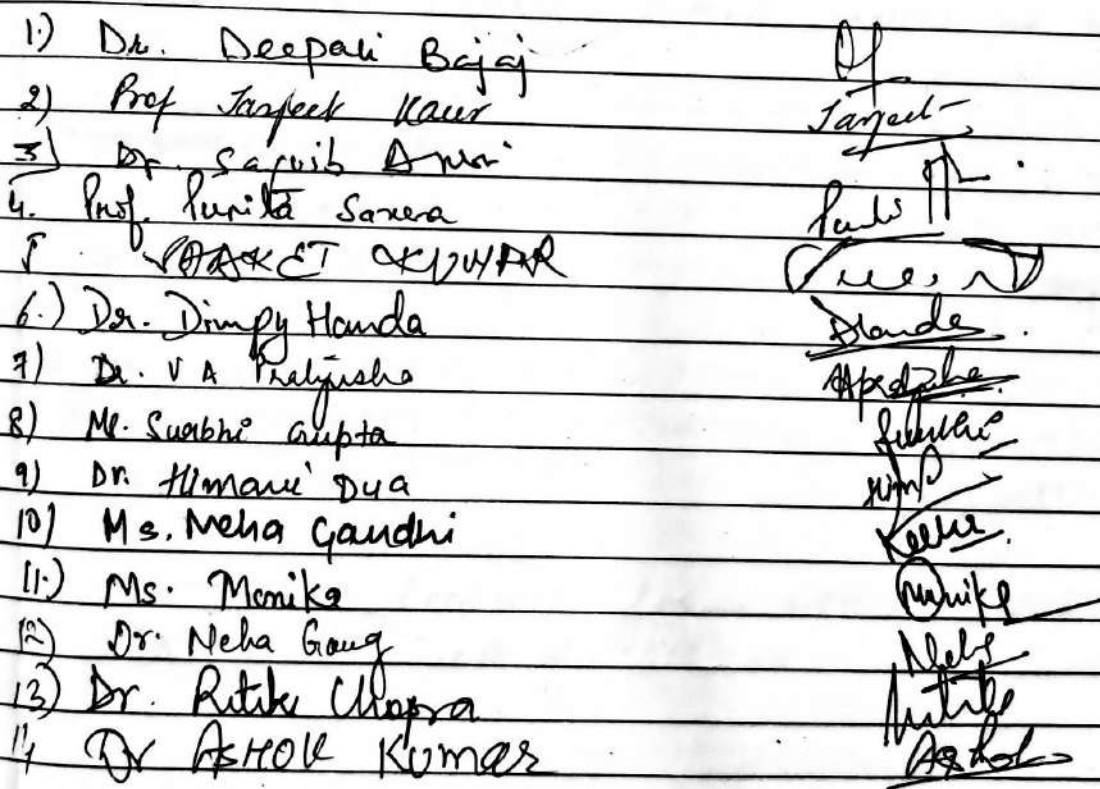 1.) Dr. Deepali Bajaj
2) Prof Tanjeet Kaur Tanjeet
3) Dr. Saquib
4. Prof. Punita Saxena
5 SAAKET KUMAR
6.) Dr. Dimpy Handa DHanda
7) Dr. V A Pratyusha VApratyusha
8) Ms. Surbhi Gupta Surbhi
9) Dr. Himani Dua Him
10) Ms. Neha Gandhi
11.) Ms. Monika Monika
12) Dr. Neha Garg Neha
13) Dr. Ritika Chopra Ritika
14 Dr ASHOK Kumar Ashok